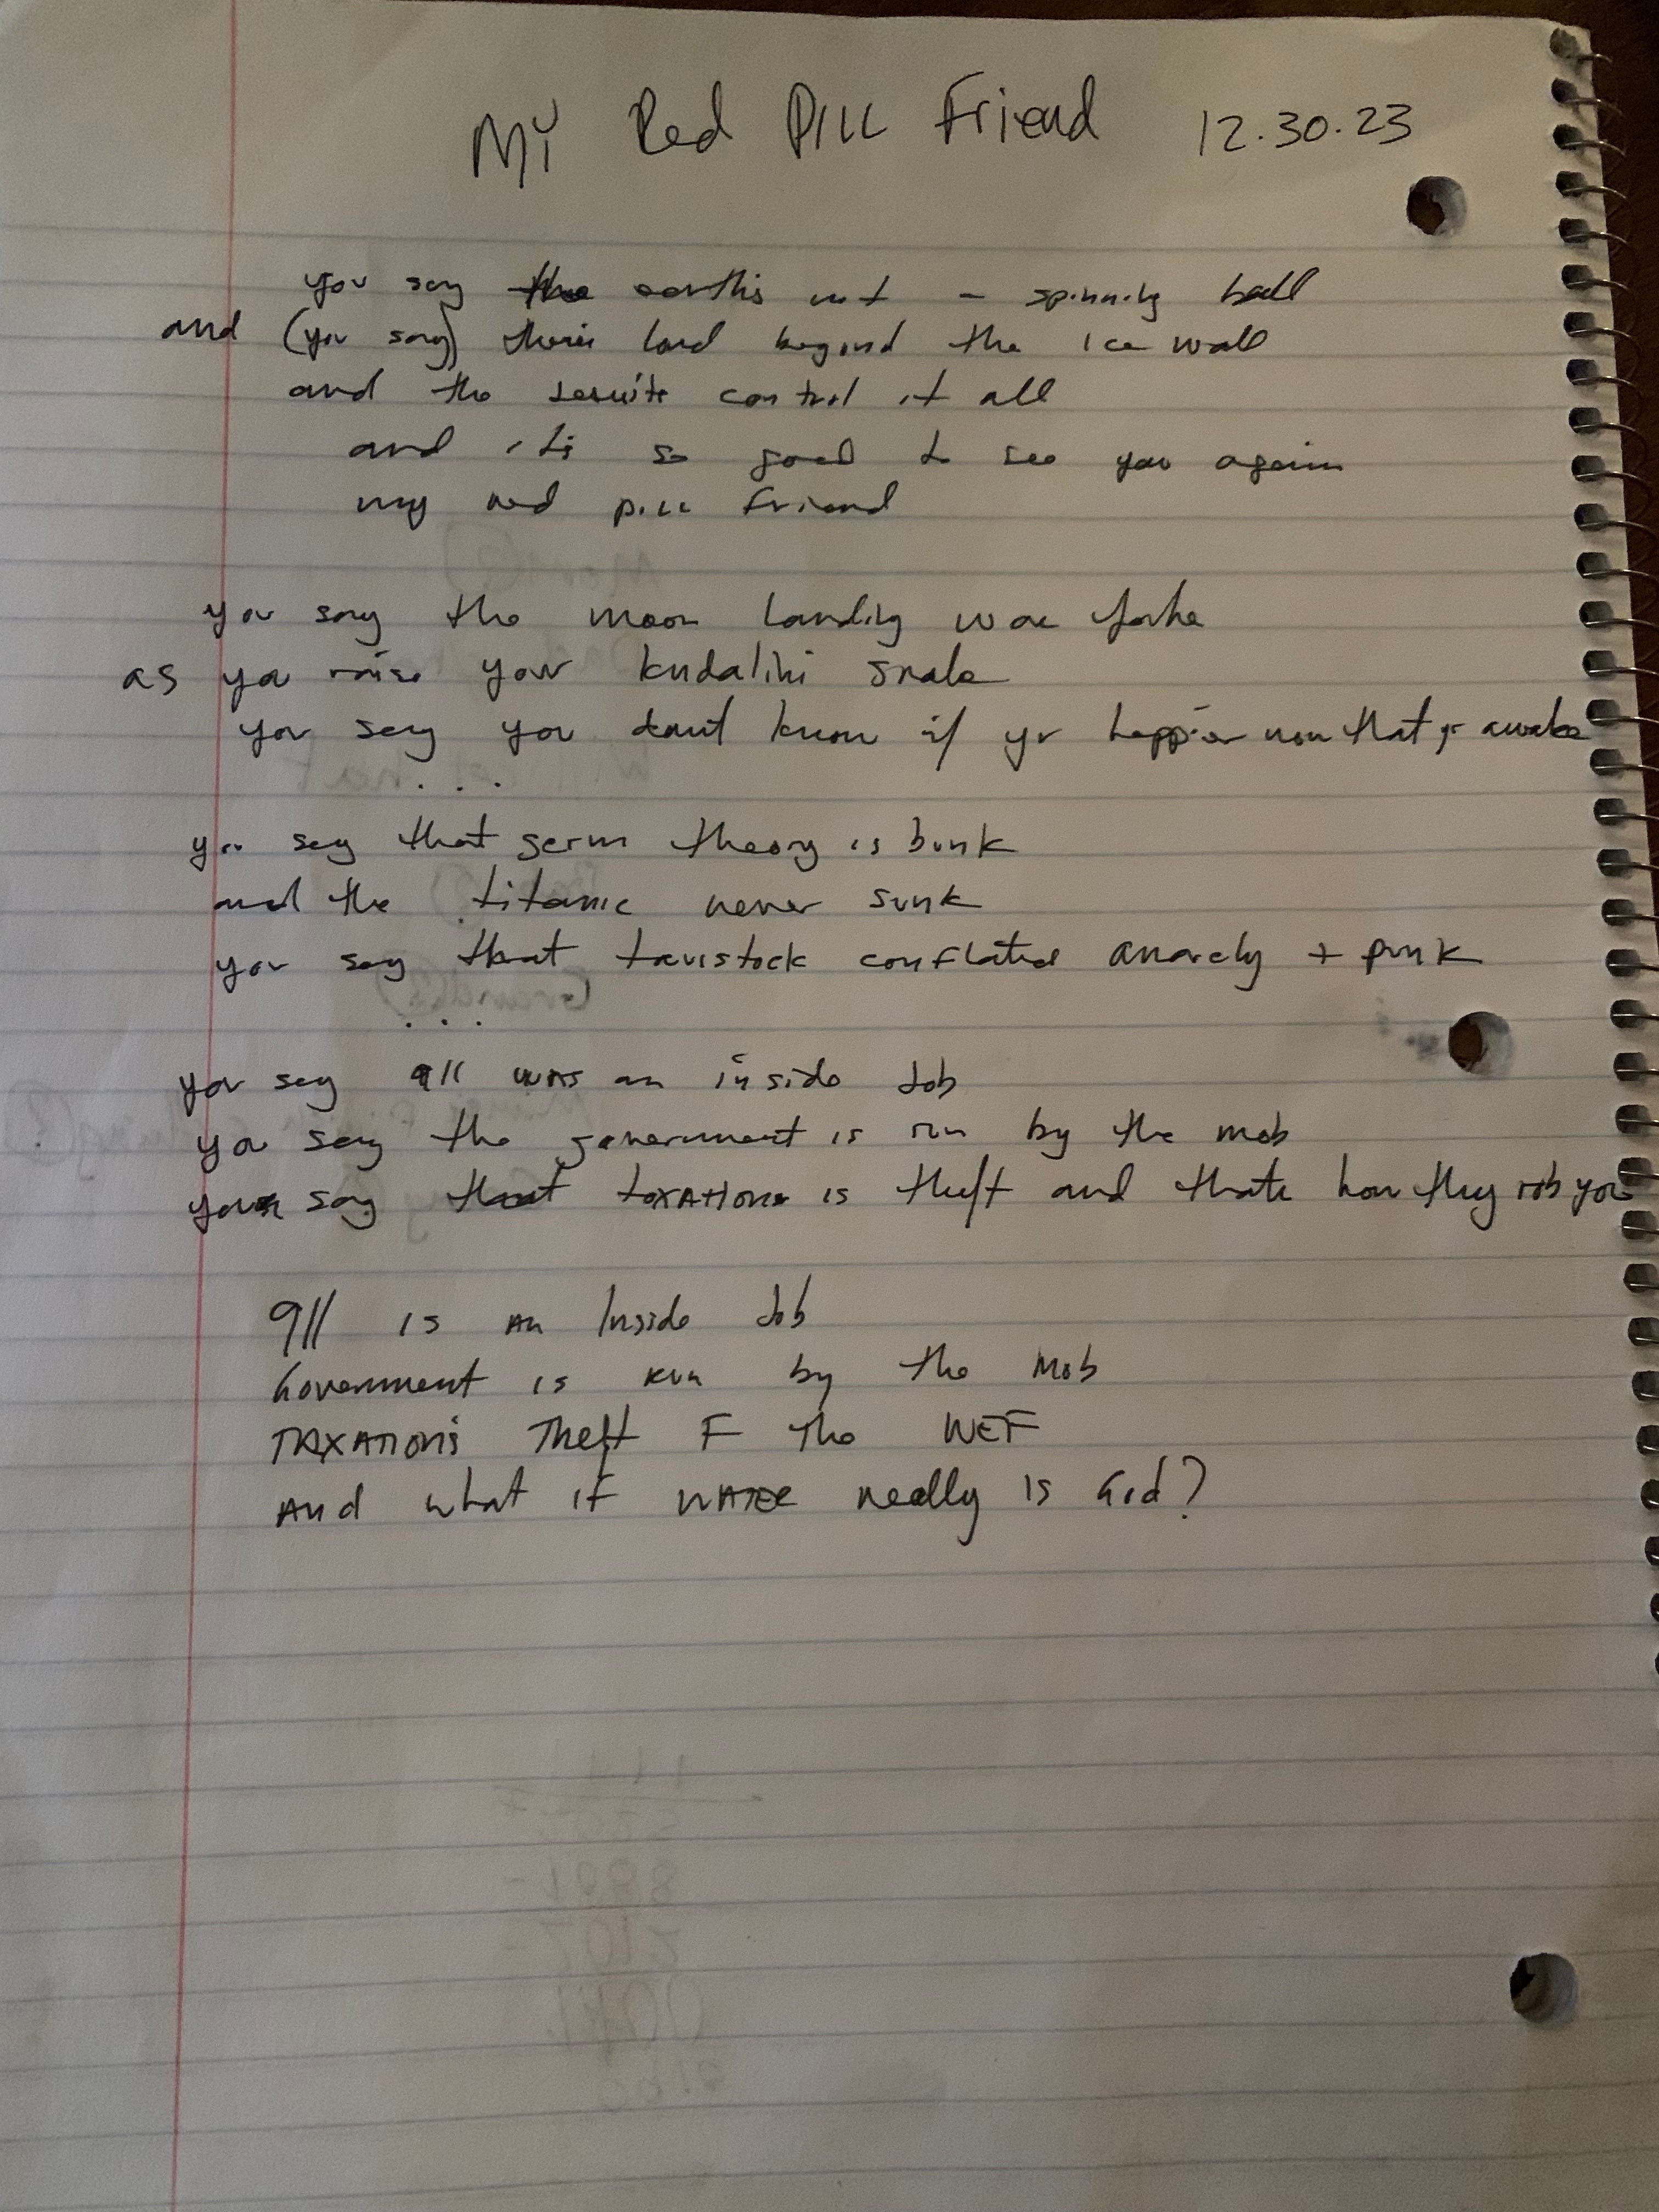 My Red Pill Friend 12.30.23
you say the earth's not a spinning ball
and (you say) there's land beyond the ice wall
and the Jesuits control it all
and it's so good to see you again
my red pill friend
you say the moon landing was fake
as you raise your kudalini snake
you say you don't know if yr happier now that yr awake
. . .
you say that germ theory is bunk
and the titanic never sunk
you say that tavistock conflated anarchy + punk
. . .
you say 911 was an inside Job
you say the government is run by the mob
you say that taxation is theft and that's how they rob you
911 is an Inside Job
Government is run by the Mob
Taxation's Theft F The WEF
And what if WATER really is God?